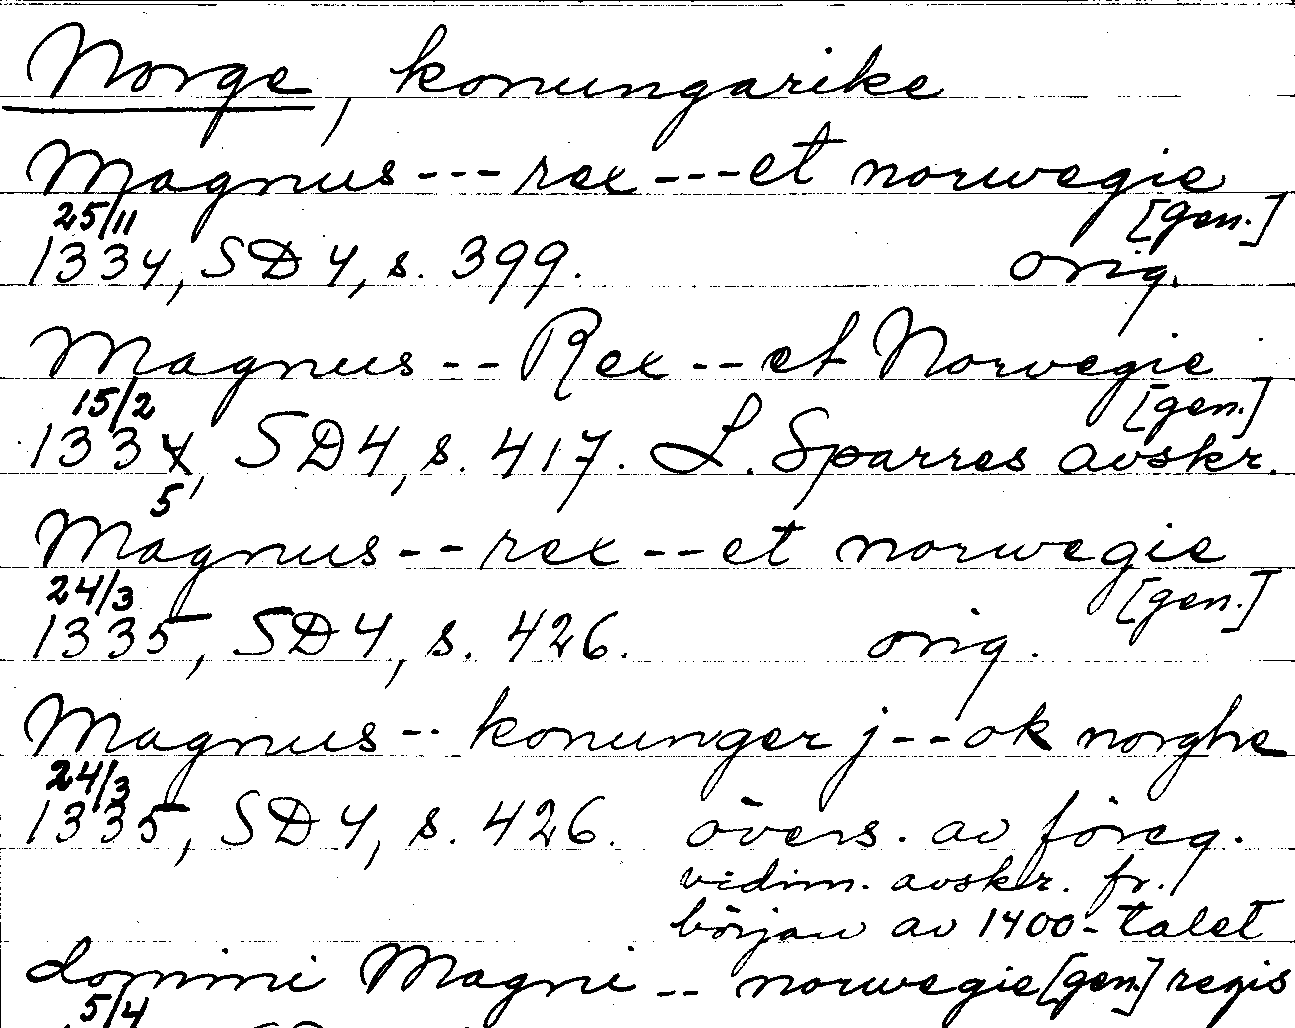 Norge, konungarike
Magnus --- rex --- et norwegie
25/11 [gen.]
1334, SD 4, s. 399. orig.
Magnus -- Rex -- et Norwegie
15/2 [gen.]
1334, SD 4, s. 417. L. Sparres avskr.
5
Magnus -- rex -- et norwegie
24/3 [gen.]
1335, SD 4, s. 426. orig.
Magnus -- konunger j -- ok norghe
24/3
1335, SD 4, s. 426. övers. av föreg.
vidim. avskr. fr.
början av 1400-talet
domini Magni -- norwegie [gen.] regis
5/4